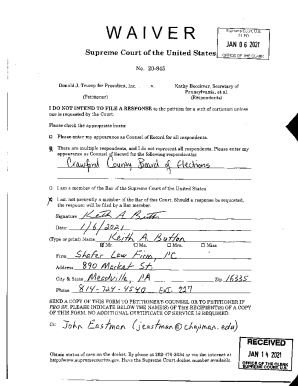 WAIVER
Supreme Court, U.S.
FILED
JAN 06 2021
OFFICE OF THE CLERK
Supreme Court of the United States
No. 20-845
Donald J. Trump for President, Inc. v. Kathy Boockvar, Secretary of
Pennsylvania, et al.
(Petitioner) (Respondents)
I DO NOT INTEND TO FILE A RESPONSE to the petition for a writ of certiorari unless
one is requested by the Court.
Please check the appropriate boxes:
Please enter my appearance as Counsel of Record for all respondents.
There are multiple respondents, and I do not represent all respondents. Please enter my
appearance as Counsel of Record for the following respondent(s):
Crawford County Board of Elections
I am a member of the Bar of the Supreme Court of the United States.
I am not presently a member of the Bar of this Court. Should a response be requested,
the response will be filed by a Bar member.
Signature Keith A Button
Date: 1/6/2021
(Type or print) Name Keith A. Button
Mr. Ms. Mrs. Miss
Firm Shafer Law Firm, PC
Address 890 Market St.
City & State Meadville, PA Zip 16335
Phone 814-724-4540 Ext. 227
SEND A COPY OF THIS FORM TO PETITIONER'S COUNSEL OR TO PETITIONER IF
PRO SE. PLEASE INDICATE BELOW THE NAME(S) OF THE RECIPIENT(S) OF A COPY
OF THIS FORM. NO ADDITIONAL CERTIFICATE OF SERVICE IS REQUIRED.
Cc: John Eastman (jeastman@chapman.edu)
RECEIVED
JAN 14 2021
OFFICE OF THE CLERK
SUPREME COURT, U.S.
Obtain status of case on the docket. By phone at 202-479-3034 or via the internet at
http://www.supremecourtus.gov. Have the Supreme Court docket number available.